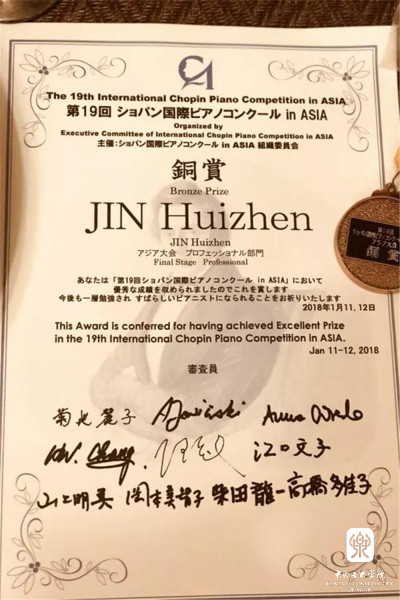 The 19th International Chopin Piano Competition in ASIA
第19回 ショパン国際ピアノコンクール in ASIA
Organized by
Executive Committee of International Chopin Piano Competition in ASIA
主催：ショパン国際ピアノコンクール in ASIA 組織委員会
銅賞
Bronze Prize
JIN Huizhen
JIN Huizhen
アジア大会 プロフェッショナル部門
Final Stage Professional
あなたは「第19回ショパン国際ピアノコンクール in ASIA」において
優秀な成績を収められましたのでこれを賞します
今後も一層勉強され すばらしいピアニストになられることをお祈りいたします
2018年1月11, 12日
This Award is conferred for having achieved Excellent Prize
in the 19th International Chopin Piano Competition in ASIA.
Jan 11-12, 2018
審査員
江口文子
山上明美 岡本美智子 柴田龍一 高橋多佳子
銅賞